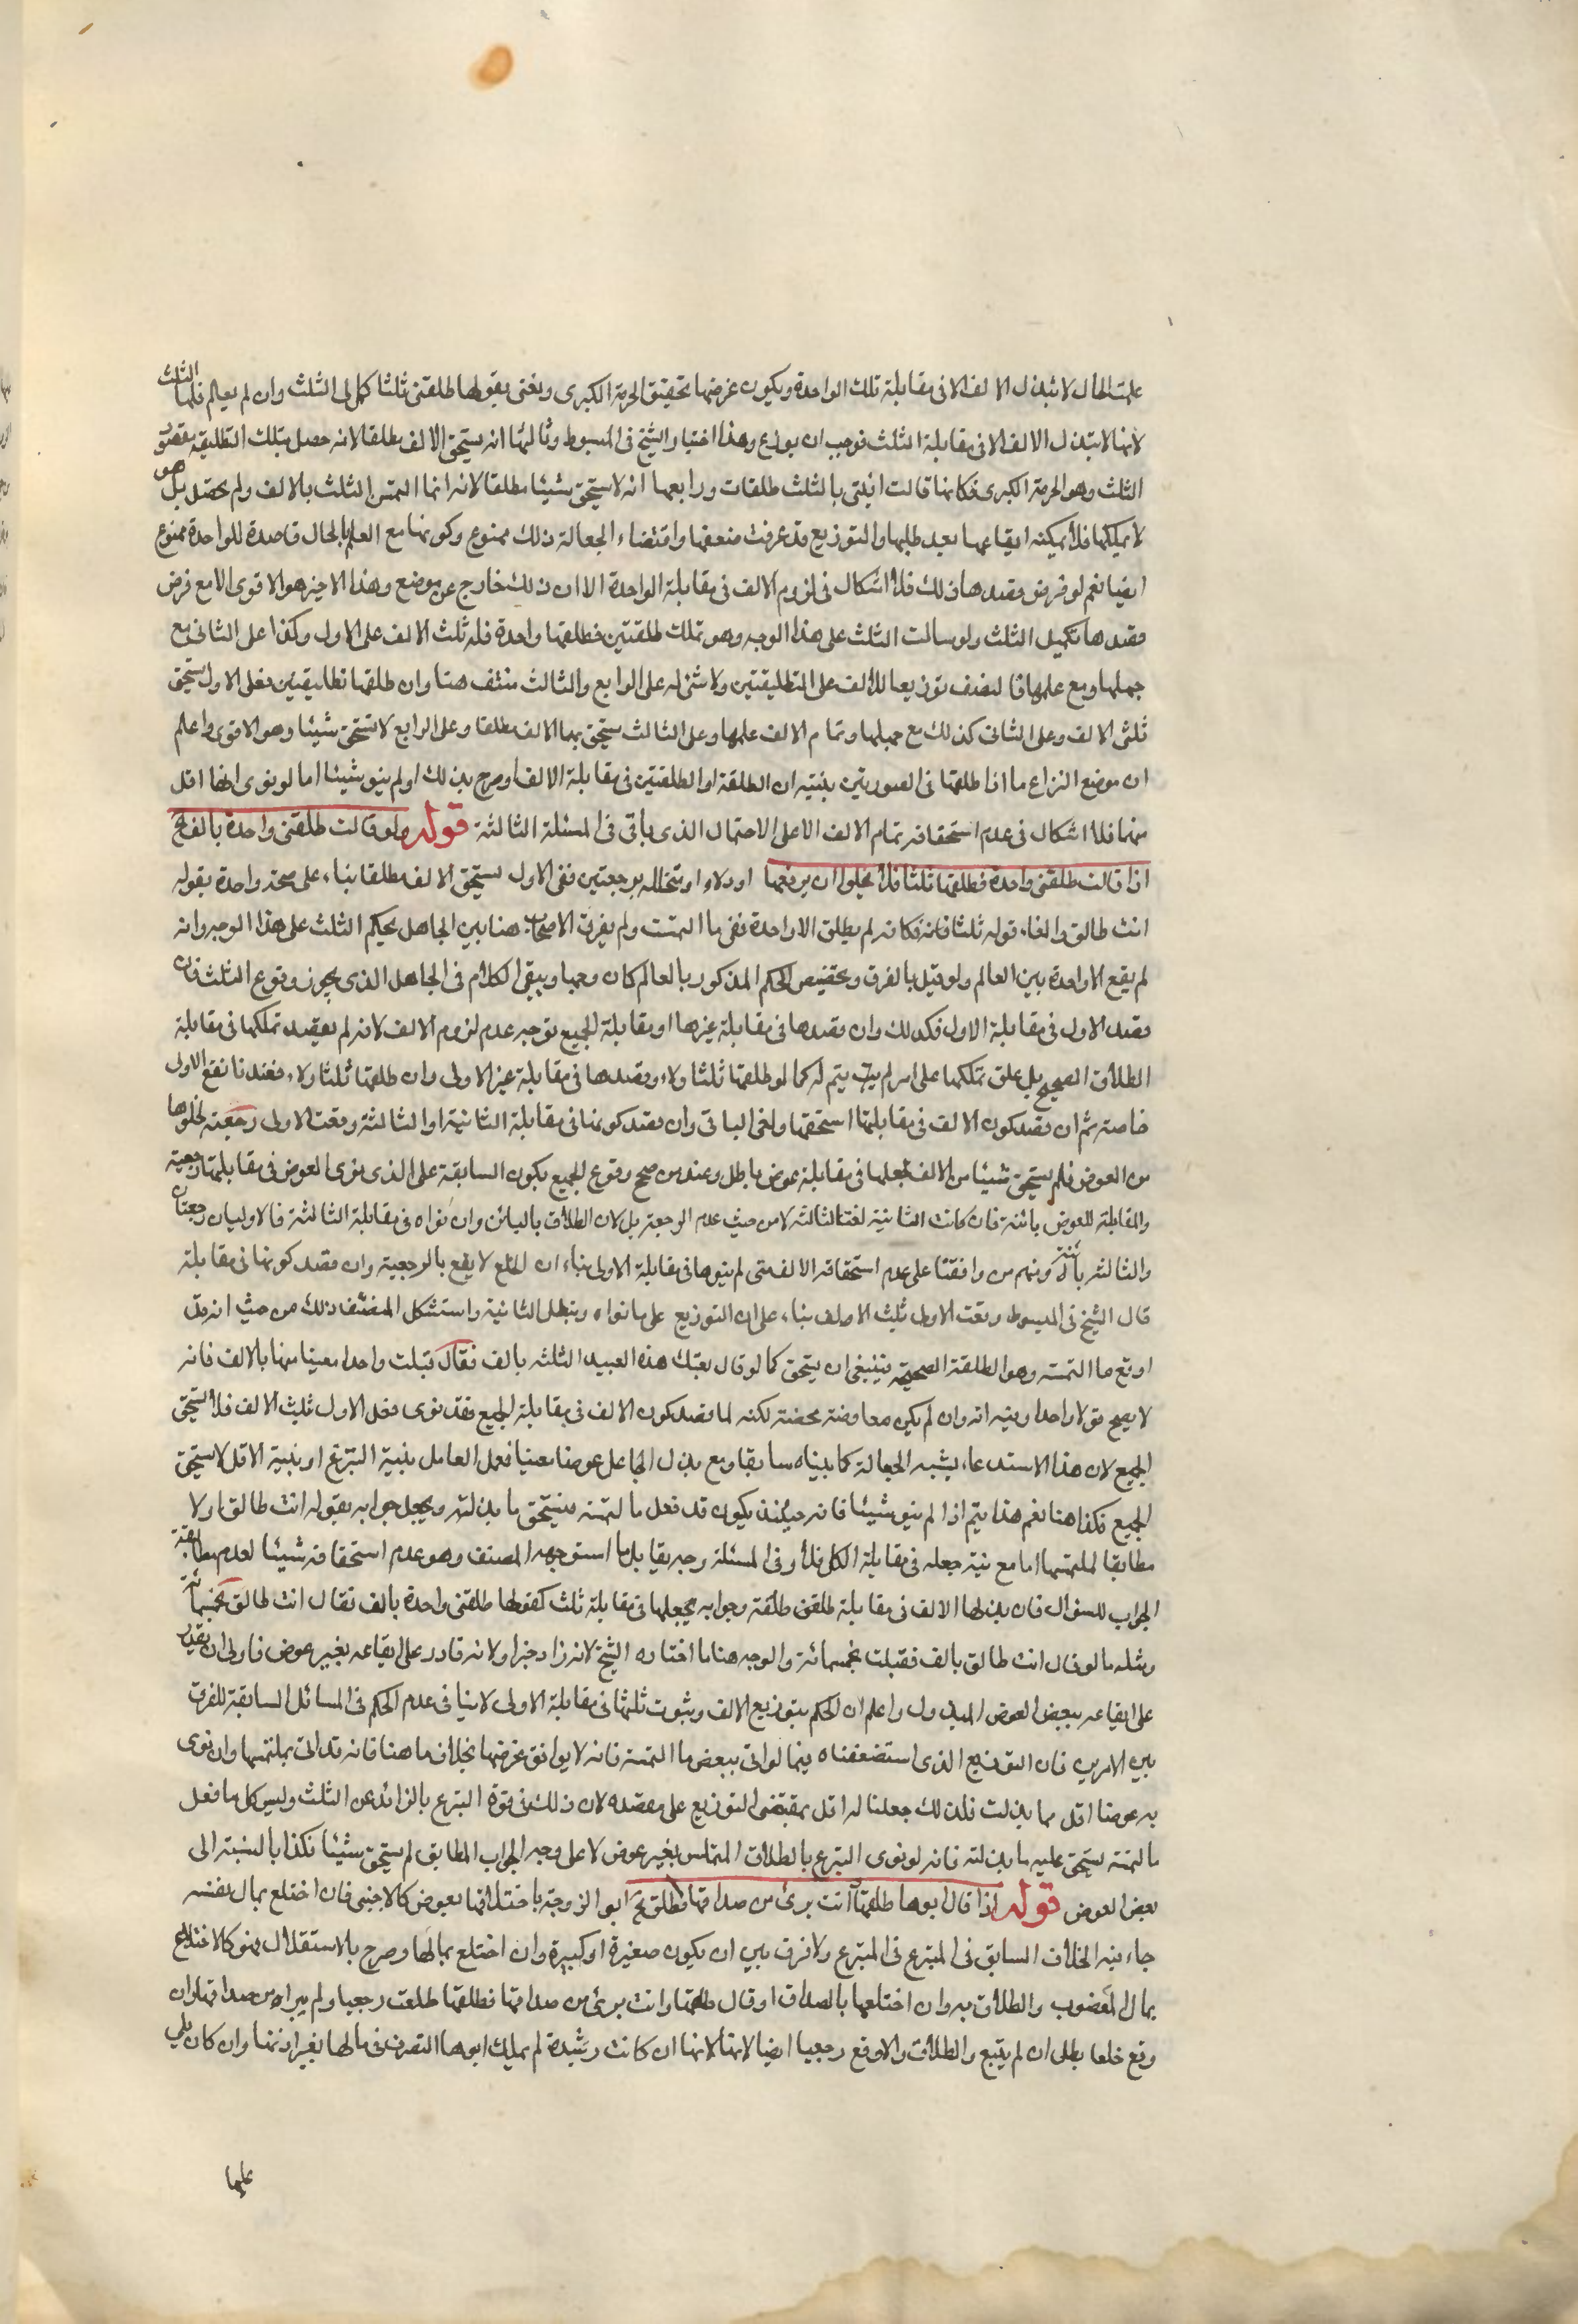 علمت الحال لا تبذل الالف الا فى مقابلة تلك الواحدة ويكون غرضها تحقيق الحرمة الكبرى ويعنى بقولها طلقنى ثلثا كمل لى الثلث وان لم يعلم فلها الثلث
لانها لا تبذل الالف الا فى مقابلة الثلث فوجب ان يوزع وهذا اختيار الشيخ فى المبسوط وثالثها انه يستحق الالف مطلقا لانه حصل بتلك التطليقة مقصود
الثلث وهو الحرمة الكبرى فكانها قالت ابنتى بالثلث طلقات ورابعها انه لا يستحق شيئا مطلقا لانه انما التمس الثلث بالالف ولم يحصل بل هو
لا يملكها فلا يمكنه ايقاعها بعد طلبها والتوزيع قد عرفت ضعفها واقتضاء الجعالة ذلك ممنوع وكونها مع العلم بالحال قاصدة للواحدة ممنوع
ايضا نعم لو فرض قصدها ذلك فلا اشكال فى لزوم الالف فى مقابلة الواحدة الا ان ذلك خارج عن موضع وهذا الاخير هو الاقوى الا مع فرض
قصدها تكميل الثلث ولو سالت الثلث على هذا الوجه وهو تملك طلقتين فطلقها واحدة فله ثلث الالف على الاول وكذا على الثانى مع
جهلها ومع علمها فالنصف توزيعا للالف على التطليقتين ولا شئ له على الرابع والثالث منتف هنا وان طلقها تطليقتين فعلى الاول يستحق
ثلثى الالف وعلى الثانى كذلك مع جهلها وتمام الالف مع علمها وعلى الثالث يستحق بها الالف مطلقا وعلى الرابع لا يستحق شيئا وهو الاقوى واعلم
ان موضع النزاع ما اذا طلقها فى الصورتين بنيته ان الطلقة او الطلقتين فى مقابلة الالف او صرح بذلك او لم ينو شيئا اما لو نوى ايضا اقل
منها فلا اشكال فى عدم استحقاقه تمام الالف الا على الاحتمال الذى ياتى فى المسئلة الثالثة قوله ولو قالت طلقنى واحدة بالف الخ
اذا قالت طلقنى واحدة فطلقها ثلثا فلا يخلوا ان يرفعها او ولاء او تتخلله برجعتين ففى الاول يستحق الالف مطلقا بناء على صحة واحدة بقوله
انت طالق والغاء قوله ثلثا فانه فكانه لم يطلق الا واحدة نفى ما التمست ولم يفرق الاصحاب هنا بين الجاهل بحكم الثلث على هذا الوجه وانه
لم يقع الا واحدة بين العالم ولو قيل بالفرق وتخصيص الحكم المذكور بالعالم كان وجها ويبقى الكلام فى الجاهل الذى يجوز وقوع الثلث فان
قصد الاول فى مقابلة الاول فكذلك وان قصدها فى مقابلة غيرها او مقابلة الجميع توجه عدم لزوم الالف لانه لم يقصد تملكها فى مقابلة
الطلاق الصحيح بل علق تملكها على امر لم يتم له كما لو طلقها ثلثا ولاء وقصدها فى مقابلة غير الاولى وان طلقها ثلثا ولاء فعندنا تقع الاولى
خاصة ثم ان قصد كون الالف فى مقابلتها استحقها ولغى الباقى وان قصد كونها فى مقابلة الثانية او الثالثة وقعت الاولى رجعية لخلوها
من العوض فلم يستحق شيئا من الالف لجعلها فى مقابلة عوض باطل وعند من صحح وقوع الجميع يكون السابقة على الذى نوى العوض فى مقابلتها رجعية
والمقابلة للعوض بائنة فان كانت الثانية لغت الثالثة لا من حيث عدم الرجعة بل لان الطلاق بالبائن وان نواه فى مقابلة الثالثة فالاوليان رجعتان
والثالثة بائنة ومنهم من وافقنا على عدم استحقاقه الالف متى لم ينوها فى مقابلة الاولى بناء ان الخلع لا يقع بالرجعية وان قصد كونها فى مقابلة
قال الشيخ فى المبسوط وقعت الاولى بثلث الالف بناء على ان التوزيع على ما نواه وتبطل الثانية واستشكل المصنف ذلك من حيث انه قد
اوقع ما التمسته وهو الطلقة الصحيحة فينبغى ان يستحق كما لو قال بعتك هذه العبيد الثلثة بالف فقال قبلت واحدا معينا منها بالالف فانه
لا يصح قولا واحدا وفيه انه وان لم يكن معاوضة محضة لكنه لما قصد كون الالف فى مقابلة الجميع فقد نوى فعل الاول بثلث الالف فلا يستحق
الجميع لان هذا الاستدعاء يشبه الجعالة كما بيناه سابقا ومع بذل الجاعل عوضا معينا فعمل العامل بنية التبرع او بنية الاقل لا يستحق
الجميع فكذا هنا نعم هذا يتم اذا لم ينو شيئا فانه حينئذ يكون قد فعل ما التمسته فيستحق ما بذلته ويجعل جوابه بقوله انت طالق اولا
مطابقا لملتمسها اما مع نية جعله فى مقابلة الكل فلا وفى المسئلة وجه يقابل ما استوجهه المصنف وهو عدم استحقاقه شيئا لعدم مطابقة
الجواب للسؤال فان بذلها الالف فى مقابلة طلقة وجوابه بجعلها فى مقابلة ثلث كقولها طلقنى واحدة بالف فقال انت طالق بخمسمائة
ومثله ما لو قال انت طالق بالف فقبلت بخمسمائة والوجه هنا ما اختاره الشيخ لانه زاد خيرا ولانه قادر على ايقاعه بغير عوض فاولى ان يقدر
على ايقاعه ببعض العوض المبذول واعلم ان الحكم بتوزيع الالف وثبوت ثلثها فى مقابلة الاولى لا ينافى عدم الحكم فى المسائل السابقة للفرق
بين الامرين فان التوزيع الذى استضعفناه فيما لو اتى ببعض ما التمسته فانه لا يوافق غرضها بخلاف ما هنا فانه قد اتى بملتمسها وان نوى
به عوضا اقل مما بذلت فلذلك جعلنا له اقل بمقتضى التوزيع على مقصده لان ذلك فى قوة التبرع بالزائد عن الثلث وليس كل ما فعل
ما التمسته يستحق عليه ما بذلته فانه لو نوى التبرع بالطلاق الملتمس بغير عوض لا على وجه الجواب المطابق لم يستحق شيئا فكذا بالنسبة الى
بعض العوض قوله اذا قال ابوها طلقها وانت برئ من صداقها فطلق الخ ابو الزوجة باختلافها بعوض كالاجنبى فان اختلع بمال نفسه
جاء فيه الخلاف السابق فى المتبرع فى المتبرع ولا فرق بين ان يكون صغيرة او كبيرة وان اختلع بمالها وصرح بالاستقلال فهو كالاختلاع
بمال المغصوب والطلاق به وان اختلعها بالصداق او قال طلقها وانت برئ من صداقها فطلقها طلقت رجعيا ولم يبراه من صداقها وان
وقع خلعا بطل ان لم يتبع والطلاق والا وقع رجعيا ايضا لانها لانها ان كانت رشيدة لم يملك ابوها التصرف فى مالها بغير اذنها وان كان يلى
عليها